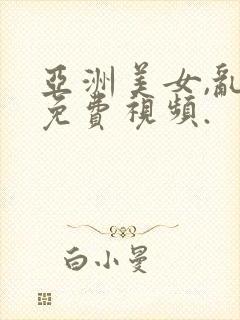 亞洲美女,亂
免費視頻.
白小曼